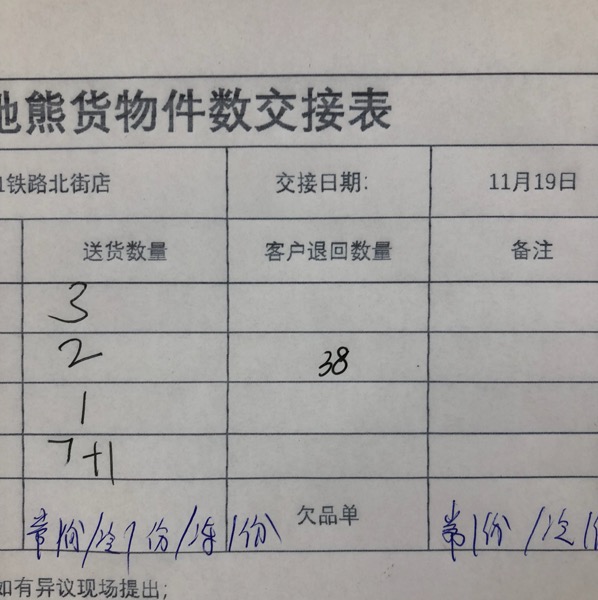 地熊货物件数交接表
1铁路北街店 交接日期: 11月19日
送货数量 客户退回数量 备注
3
2 38
1
7+1
欠品单
如有异议现场提出;